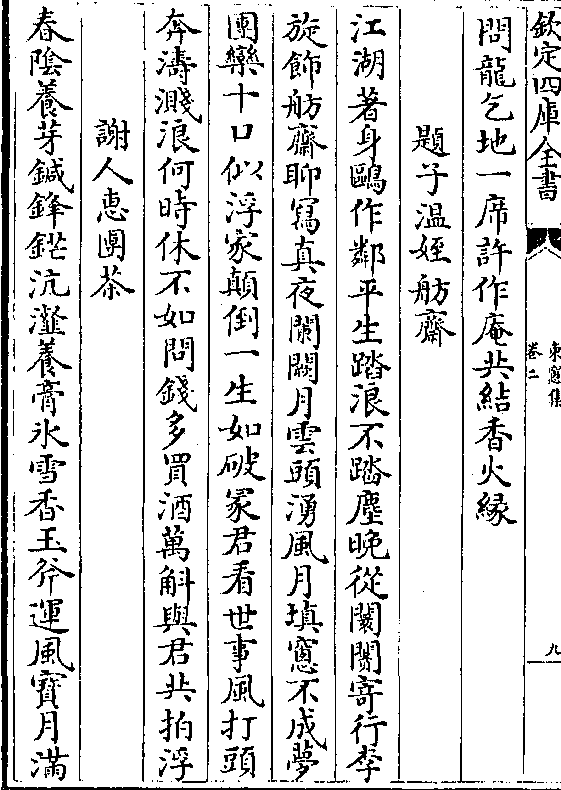 欽定四庫全書
東窻集
卷二
九
問龍乞地一席許作庵共結香火緣
題子温姪舫齋
江湖著身鷗作鄰平生踏浪不踏塵晚從闤闠寄行李
旋飾舫齋聊寫真夜闌闢月雲頭湧風月填窻不成夢
團欒十口似浮家顛倒一生如破冢君看世事風打頭
奔濤濺浪何時休不如問錢多買酒萬斛與君共拍浮
謝人惠團茶
春陰養芽鍼鋒鋩沆瀣養膏氷雪香玉斧運風寶月滿